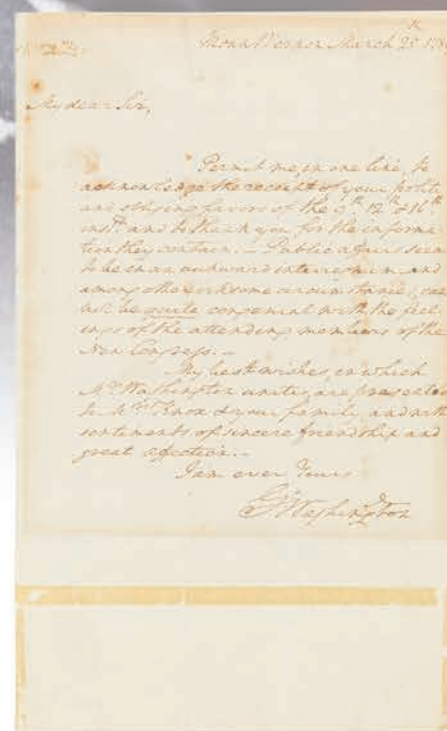 Mount Vernon March 25th 178
My dear Sir,
Permit me, in one line, to
acknowledge the receipt of your polite
and obliging favors of the 9th 12th & 16th
inst. and to thank you for the informa
tion they contain. — Public affairs seem
to be in an awkward
among other irksome circumstances, can
not be quite congenial with the feel
ings of the attending members of the
New Congress. —
My best wishes, in which
Mrs Washington unites, are presented
to Mrs Knox & your family, and with
sentiments of sincere friendship and
great affection. —
I am ever Yours
G Washington